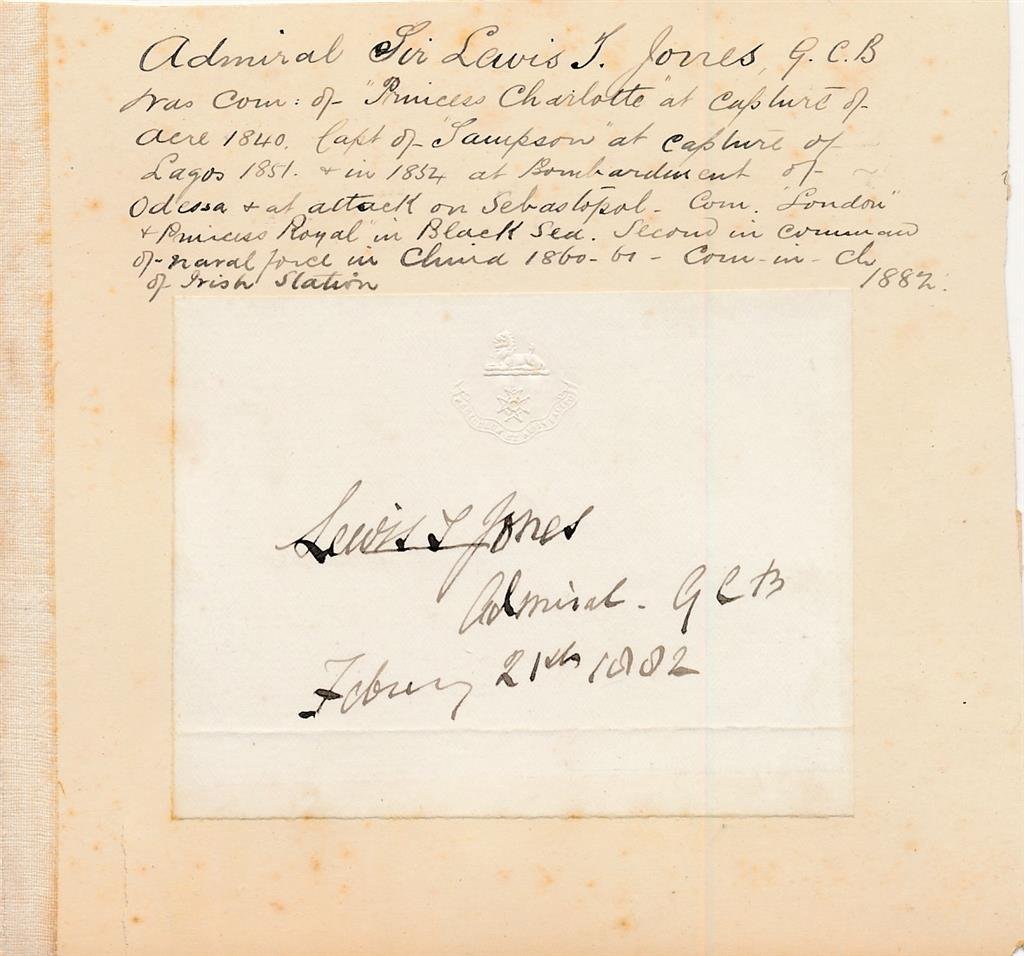 Admiral Sir Lewis T. Jones, G.C.B
was Com: of "Princess Charlotte" at capture of
Acre 1840. Capt of "Sampson" at capture of
Lagos 1851. & in 1854 at Bombardment of
Odessa & at attack on Sebastopol - Com. "London"
& Princess Royal" in Black Sea. Second in command
of naval force in China 1860-61 - Com-in-Ch
of Irish Station 1882.
Lewis T Jones
Admiral - G C B
Febury 21th 1882